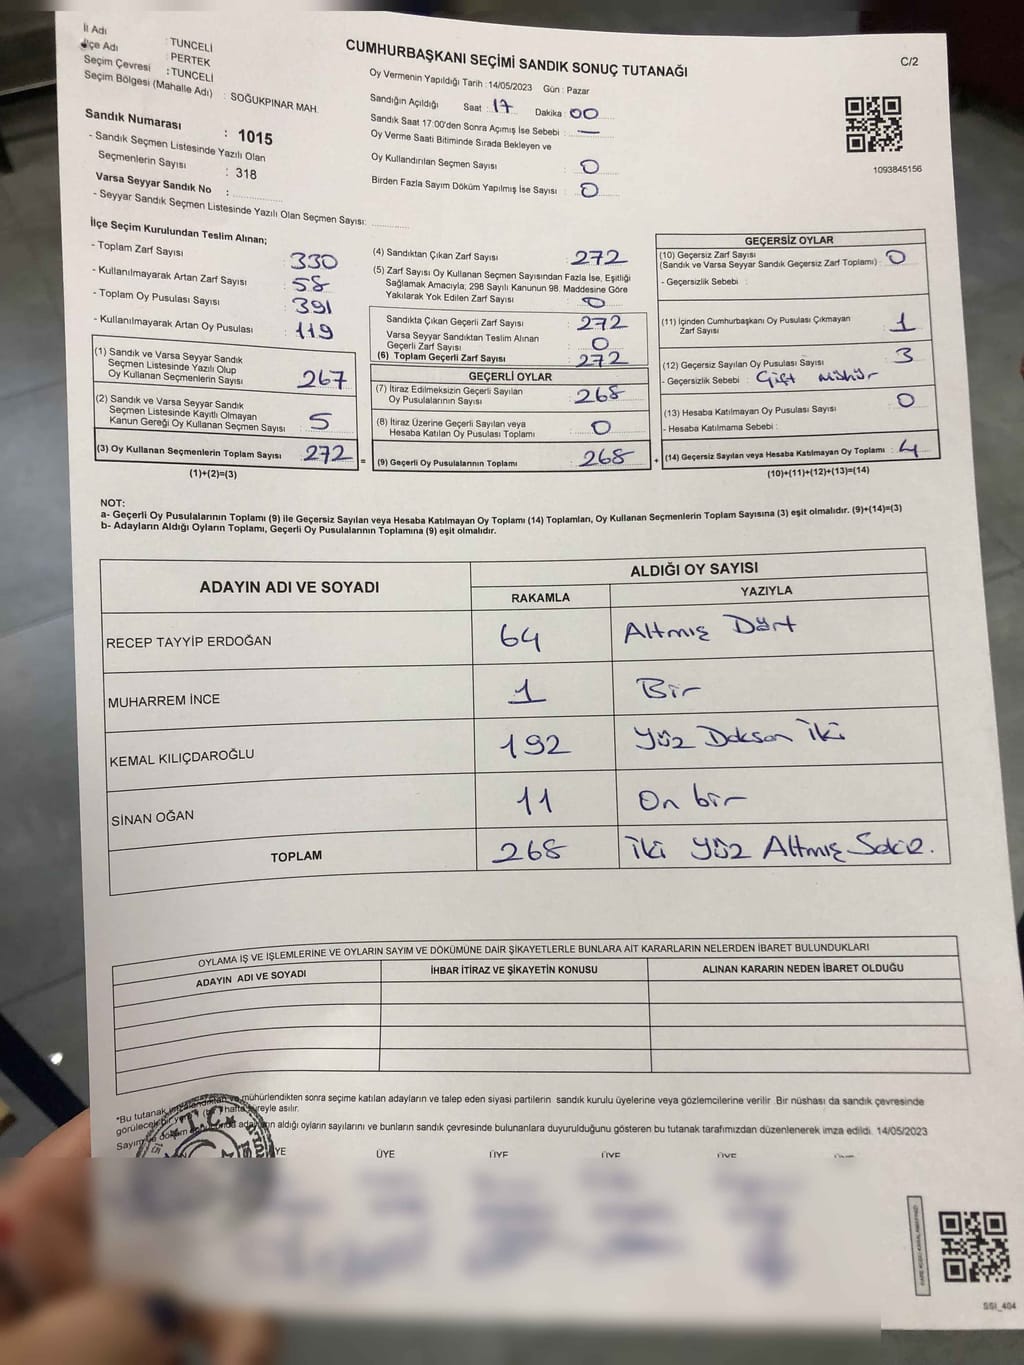 İl Adı : TUNCELİ
İlçe Adı : PERTEK
Seçim Çevresi : TUNCELİ
Seçim Bölgesi (Mahalle Adı) : SOĞUKPINAR MAH.
Sandık Numarası : 1015
- Sandık Seçmen Listesinde Yazılı Olan
Seçmenlerin Sayısı : 318
Varsa Seyyar Sandık No :
- Seyyar Sandık Seçmen Listesinde Yazılı Olan Seçmen Sayısı:
CUMHURBAŞKANI SEÇİMİ SANDIK SONUÇ TUTANAĞI
Oy Vermenin Yapıldığı Tarih : 14/05/2023 Gün : Pazar
Sandığın Açıldığı Saat : 17 Dakika : 00
Sandık Saat 17:00'den Sonra Açımış İse Sebebi : —
Oy Verme Saati Bitiminde Sırada Bekleyen ve
Oy Kullandırılan Seçmen Sayısı : 0
Birden Fazla Sayım Döküm Yapılmış İse Sayısı : 0
C/2
1093845156
İlçe Seçim Kurulundan Teslim Alınan;
- Toplam Zarf Sayısı : 330
- Kullanılmayarak Artan Zarf Sayısı : 58
- Toplam Oy Pusulası Sayısı : 391
- Kullanılmayarak Artan Oy Pusulası : 119
(1) Sandık ve Varsa Seyyar Sandık
Seçmen Listesinde Yazılı Olup
Oy Kullanan Seçmenlerin Sayısı : 267
(2) Sandık ve Varsa Seyyar Sandık
Seçmen Listesinde Kayıtlı Olmayan
Kanun Gereği Oy Kullanan Seçmen Sayısı : 5
(3) Oy Kullanan Seçmenlerin Toplam Sayısı : 272
(1)+(2)=(3)
(4) Sandıktan Çıkan Zarf Sayısı : 272
(5) Zarf Sayısı Oy Kullanan Seçmen Sayısından Fazla İse, Eşitliği
Sağlamak Amacıyla; 298 Sayılı Kanunun 98. Maddesine Göre
Yakılarak Yok Edilen Zarf Sayısı : 0
Sandıkta Çıkan Geçerli Zarf Sayısı : 272
Varsa Seyyar Sandıktan Teslim Alınan
Geçerli Zarf Sayısı : 0
(6) Toplam Geçerli Zarf Sayısı : 272
GEÇERLİ OYLAR
(7) İtiraz Edilmeksizin Geçerli Sayılan
Oy Pusulalarının Sayısı : 268
(8) İtiraz Üzerine Geçerli Sayılan veya
Hesaba Katılan Oy Pusulası Toplamı : 0
= (9) Geçerli Oy Pusulalarının Toplamı : 268 +
GEÇERSİZ OYLAR
(10) Geçersiz Zarf Sayısı
(Sandık ve Varsa Seyyar Sandık Geçersiz Zarf Toplamı) : 0
- Geçersizlik Sebebi :
(11) İçinden Cumhurbaşkanı Oy Pusulası Çıkmayan
Zarf Sayısı : 1
(12) Geçersiz Sayılan Oy Pusulası Sayısı : 3
- Geçersizlik Sebebi : Çift mühür
(13) Hesaba Katılmayan Oy Pusulası Sayısı : 0
- Hesaba Katılmama Sebebi :
(14) Geçersiz Sayılan veya Hesaba Katılmayan Oy Toplamı : 4
(10)+(11)+(12)+(13)=(14)
NOT:
a- Geçerli Oy Pusulalarının Toplamı (9) ile Geçersiz Sayılan veya Hesaba Katılmayan Oy Toplamı (14) Toplamları, Oy Kullanan Seçmenlerin Toplam Sayısına (3) eşit olmalıdır. (9)+(14)=(3)
b- Adayların Aldığı Oyların Toplamı, Geçerli Oy Pusulalarının Toplamına (9) eşit olmalıdır.
ADAYIN ADI VE SOYADI ALDIĞI OY SAYISI
RAKAMLA YAZIYLA
RECEP TAYYİP ERDOĞAN 64 Altmış Dört
MUHARREM İNCE 1 Bir
KEMAL KILIÇDAROĞLU 192 Yüz Doksan iki
SİNAN OĞAN 11 On bir
TOPLAM 268 iki Yüz Altmış Sekiz.
OYLAMA İŞ VE İŞLEMLERİNE VE OYLARIN SAYIM VE DÖKÜMÜNE DAİR ŞİKAYETLERLE BUNLARA AİT KARARLARIN NELERDEN İBARET BULUNDUKLARI
ADAYIN ADI VE SOYADI İHBAR İTİRAZ VE ŞİKAYETİN KONUSU ALINAN KARARIN NEDEN İBARET OLDUĞU
*Bu tutanak mühürlendikten sonra seçime katılan adayların ve talep eden siyasi partilerin sandık kurulu üyelerine veya gözlemcilerine verilir. Bir nüshası da sandık çevresinde
görülecek bir hafta süreyle asılır.
Sayım aldığı oyların sayılarını ve bunların sandık çevresinde bulunanlara duyurulduğunu gösteren bu tutanak tarafımızdan düzenlenerek imza edildi. 14/05/2023
ÜYE ÜYE ÜYE ÜYE
SSİ_404